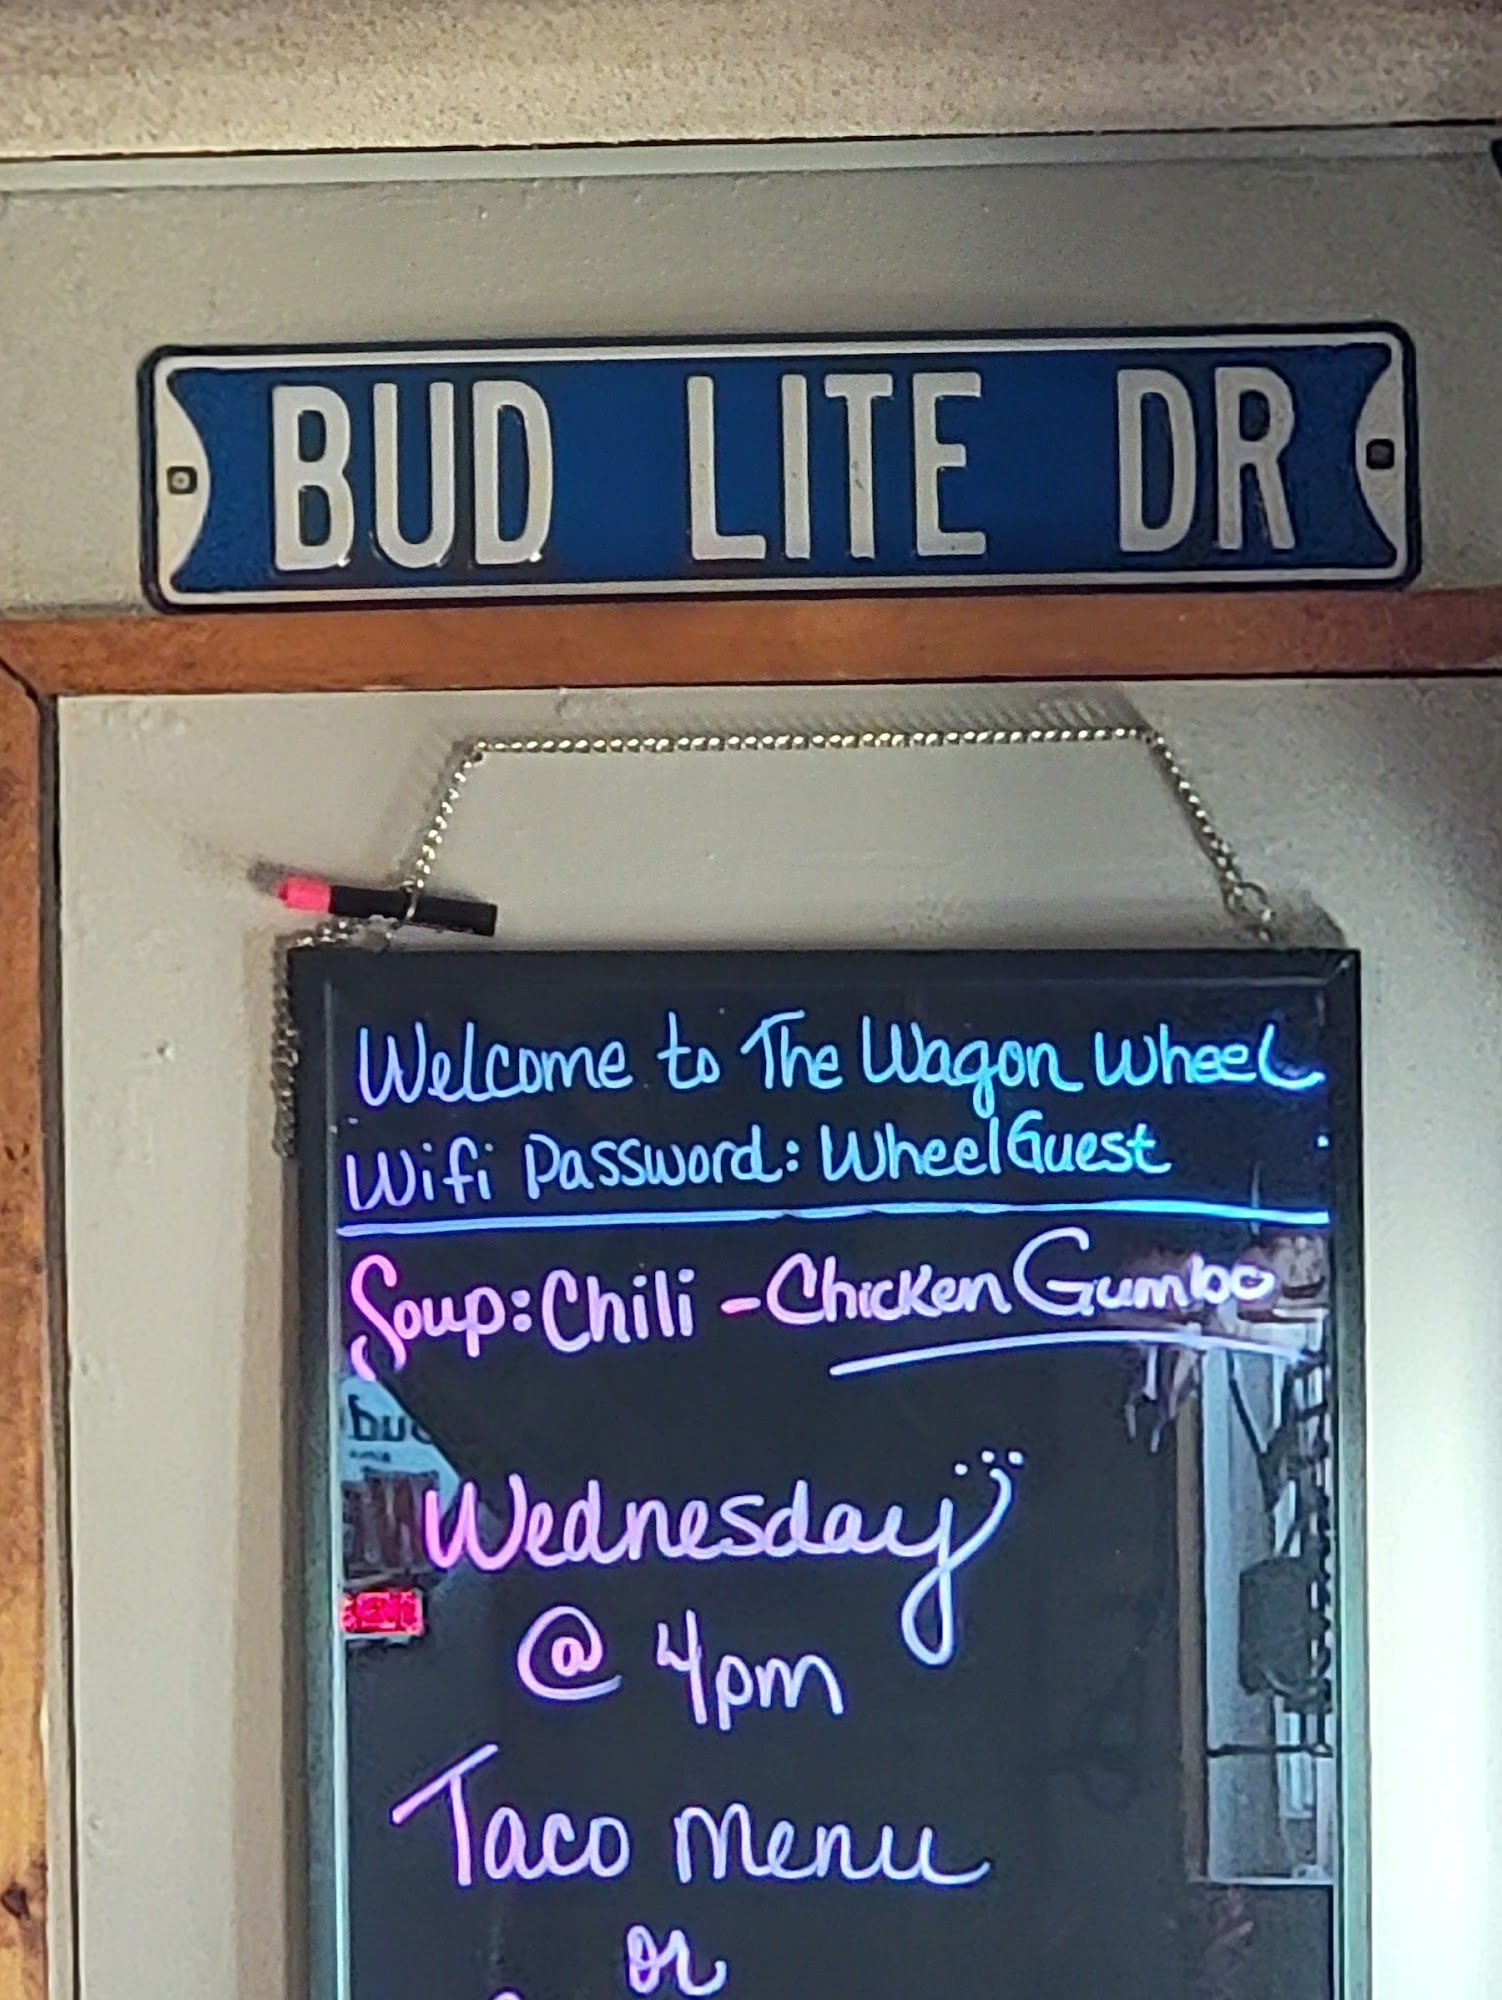 BUD LITE DR
Welcome to The Wagon Wheel
Wifi Password: WheelGuest
Soup: Chili - Chicken Gumbo
Wednesday
@ 4pm
Taco Menu
or